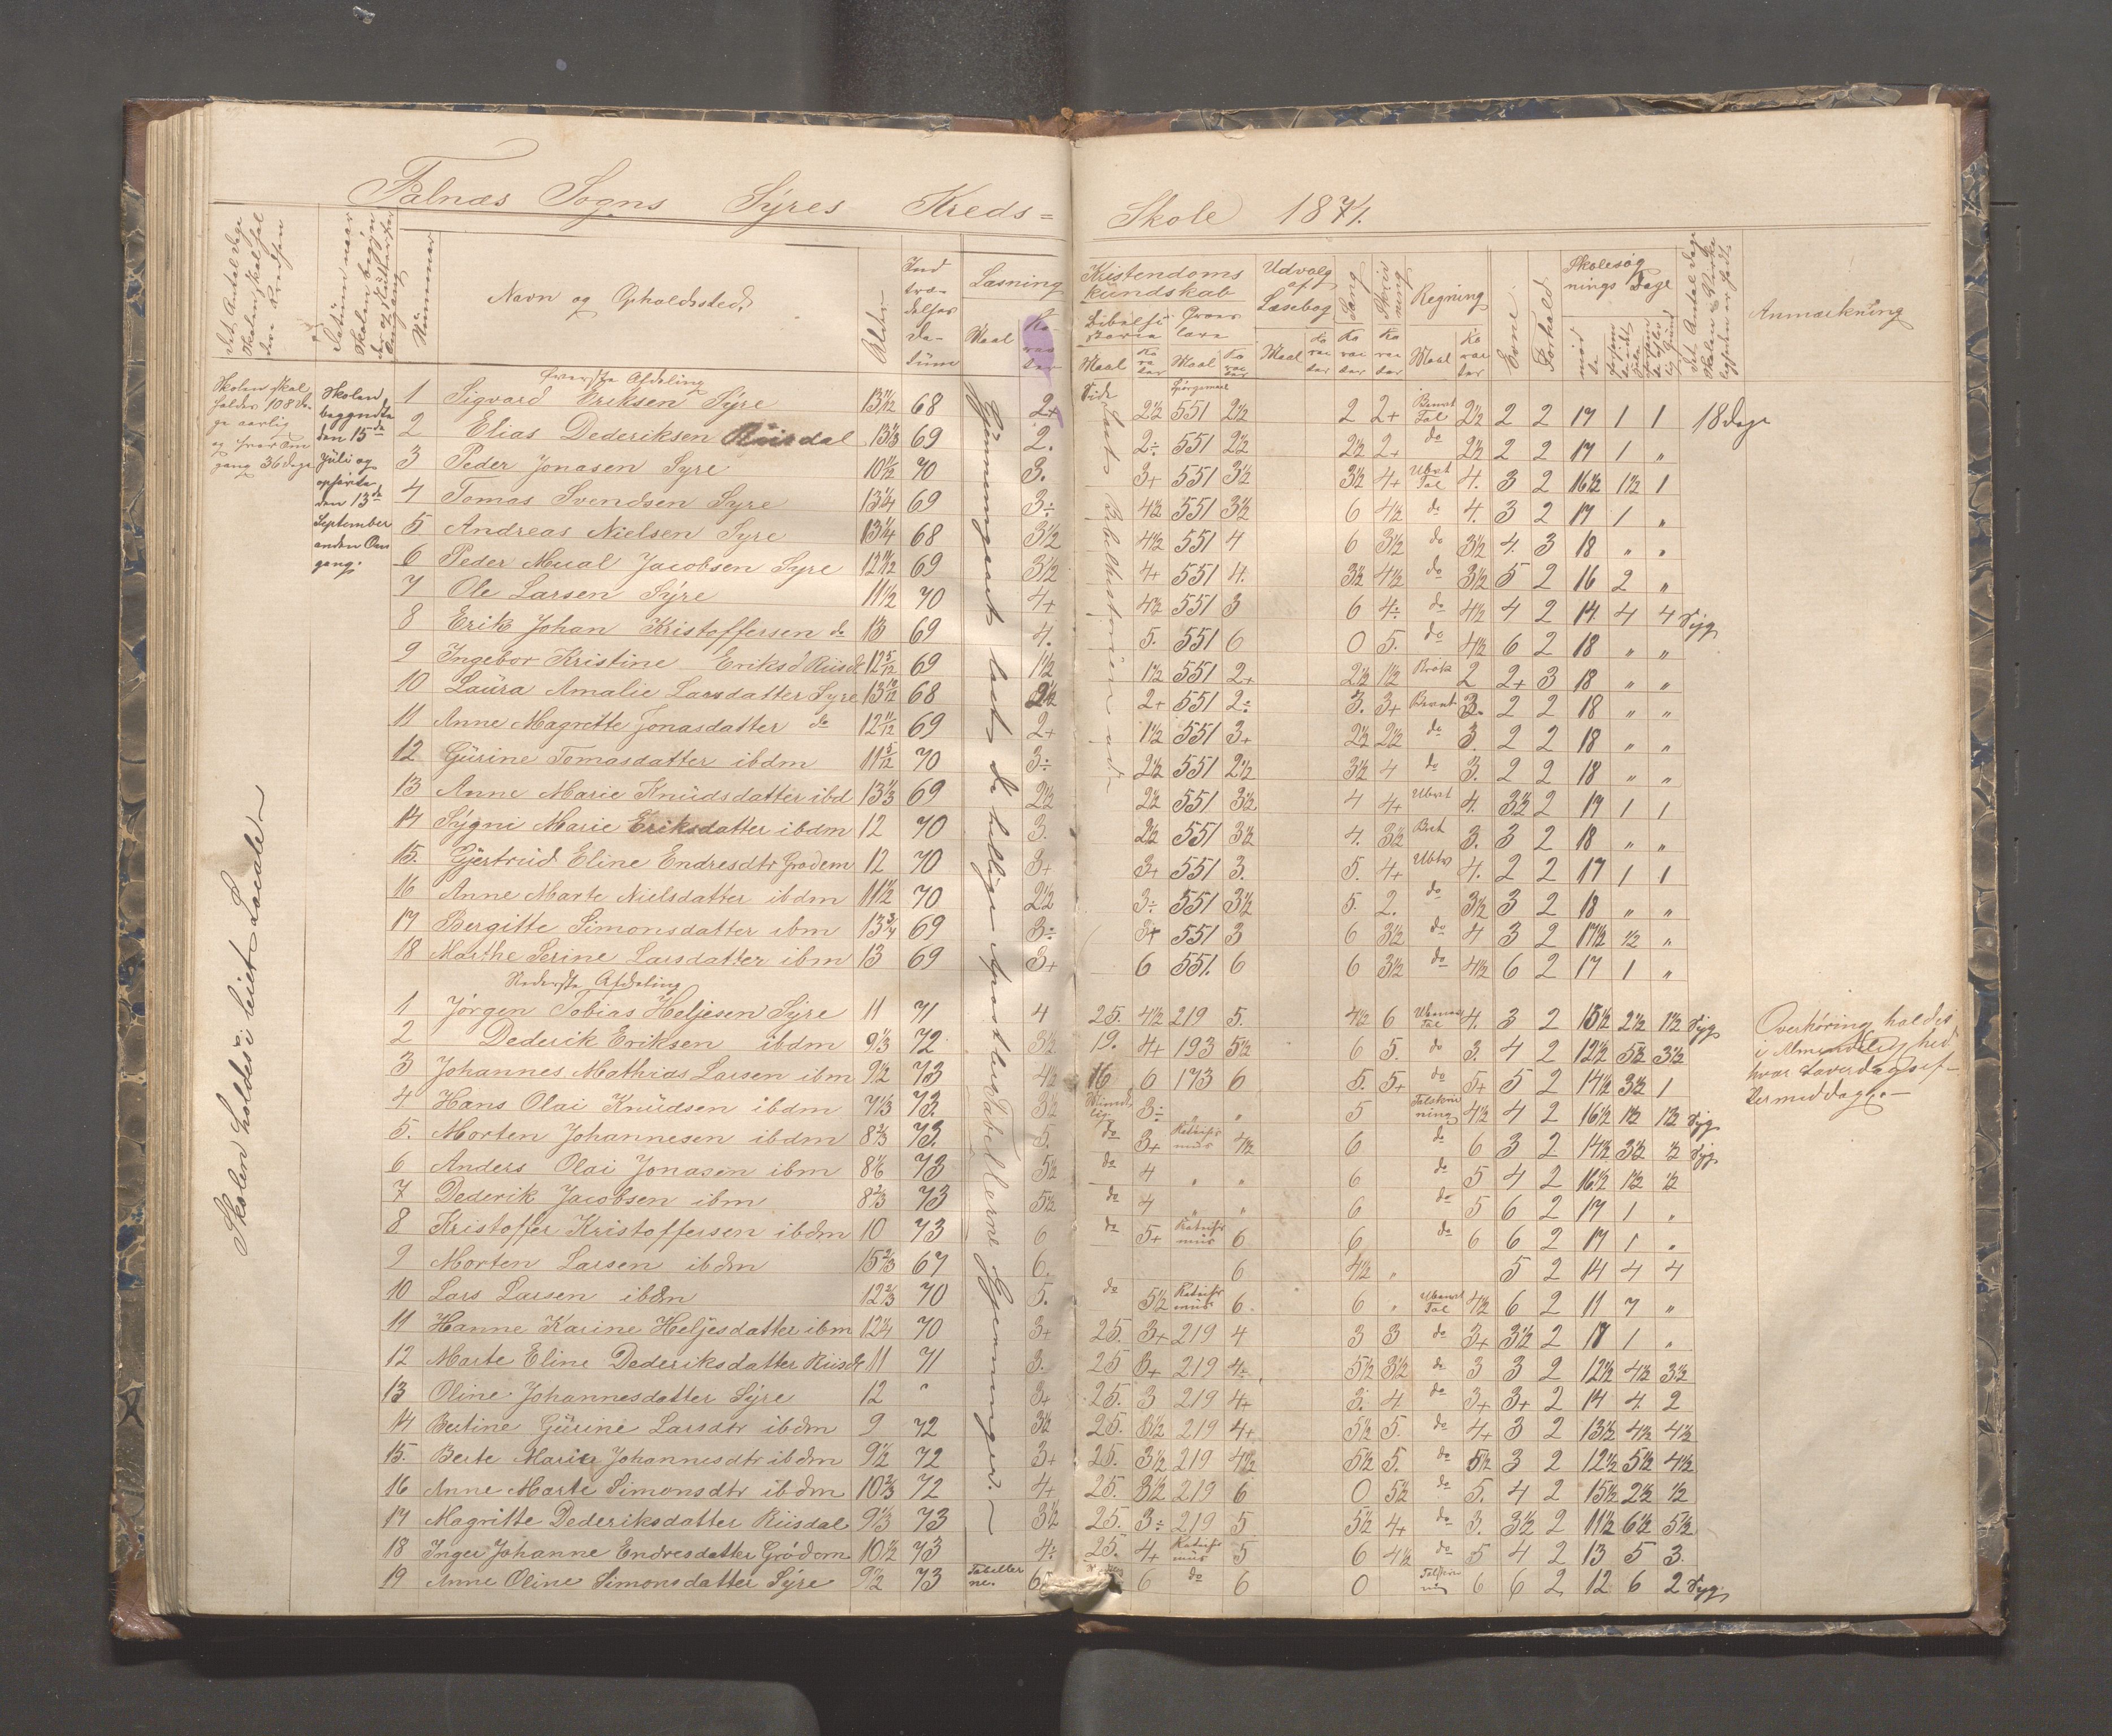 Falnæs Sogns Syres Kreds=
Skole 1874.
Det Antal Dage Skolen skal holdes i Kredsen
Datum naar Skolen begynder og slutter for Omgang
Nummer
Navn og Opholdssted
Alder
Indtrædelses Datum
Læsning
Maal
Karakter
Kristendomskundskab
Bibelhistorie
Troeslære
Udvalg af Læsebog
Sang
Skrivning
Regning
Evne
Forhold
Skolesøgnings Dage
mødte
Anmærkning
Skolen skal holdes 108 Dage aarlig og hver Omgang 36 Dage
Skolen begyndte den 15de Juli og ophørte den 13de September anden Omgang.
Skolen holdes i leiet Locale
Gjennemgaaet læst de hellige Apostlers Tabellerne Gjerninger.
Øverste Afdeling
1 Sigvard Eriksen Syre 13 11/12 68 2+ 2½ 551 2½ 2 2+ 2½ 2 2 17 1 1 18 Dage
2 Elias Dederiksen Riisdal 13⅓ 69 2. 2÷ 551 2½ 2½ 2+ do 2½ 2 2 17 1 „
3 Peder Jonasen Syre 10 11/12 70 3. 3+ 551 3½ 3½ 4+ Ubvt Tal 4. 3 2 16½ 1½ 1
4 Tomas Svendsen Syre 13¼ 69 3÷ 4½ 551 3½ 6 4½ do 4. 3 2 17 1 „
5 Andreas Nielsen Syre 13¼ 68 3½ 4½ 551 4 6 3½ do 3½ 4. 3 18 „ „
6 Peder Mual Jacobsen Syre 12 11/12 69 3½ 4+ 551 4. 3½ 4½ do 3½ 5 2 16 2 „
7 Ole Larsen Syre 11½ 70 4+ 4½ 551 3 6 4÷ do 4½ 4 2 14 4 4 Syg
8 Erik Johan Kristoffersen do 13 69 4. 5. 551 6 0 5. do 4½ 6 2 18 „ „
9 Ingebor Kristine Eriksd Riisdl 12 5/12 69 1½ 1½ 551 2+ 2½ 1½ Brøk 2 2+ 3 18 „ „
10 Laura Amalie Larsdatter Syre 13 10/12 68 2½ 2+ 551 2÷ 3. 3+ Bevnt 3. 2 2 18 „ „
11 Anne Magrette Jonasdatter do 12 11/12 69 2+ 1½ 551 3+ 2½ 2½ do 3. 2 2 18 „ „
12 Gurine Tomasdatter ibdm 11 5/12 70 3÷ 2½ 551 2½ 3½ 4 do 3. 2 2 18 „ „
13 Anne Marie Knudsdatter ibd 13⅓ 69 2½ 2½ 551 3½ 4 4+ Ubvt 4. 3½ 2 17 1 1
14 Sygni Marie Eriksdatter ibdm 12 70 3. 2½ 551 3½ 4. 3½ 3. 3 2 18 „ „
15. Gjertrud Eline Endresdtr Grødem 12 70 3+ 3+ 551 3. 5. 4+ 4. 2 2 17 1 1
16 Anne Marte Nielsdatter ibdm 11½ 70 2½ 3÷ 551 3½ 5. 2. do 3½ 3 2 18 „ „
17 Bergitte Simonsdatter ibm 13¾ 69 3÷ 3+ 551 3 6 3½ do 4 3 2 17½ ½ „
18 Marthe Serine Larsdatter ibm 13 69 3+ 6 551. 6 6 3½ do 4½ 6 2 17 1 „
Nederste Afdeling
1 Jørgen Tobias Heljesen Syre 11 71 4 25. 4½ 219 5. 4½ 6 4. 3 2 15½ 2½ 1½ Syg
2 Dederik Eriksen ibdm 9⅓ 72 3½ 19. 4+ 193 5½ 6 5. do 3. 4 2 12½ 5½ 3½
3 Johannes Mathias Larsen ibm 9½ 73 4½ 16 6 173 6 5. 5+ do 5+ 5 2 14½ 3½ 1
4 Hans Olai Knudsen ibdm 7⅓ 73. 3½ Mundtlig 3÷ „ „ 5 Talskrivning 4½ 4 2 16½ 1½ 1½ Syg
5. Morten Johannesen ibdm 8⅔ 73. 5. do 3+ Katechismus 4½ 6 do 6 3 2 14½ 3½ ½ Syg
6 Anders Olai Jonasen ibm 8⅙ 73 5½ do 4 „ „ 6 do 5 4 2 16½ 1½ ½
7 Dederik Jacobsen ibm 8⅔ 73 5½ do 4 „ „ 6 do 5 6 2 17 1 „
8 Kristoffer Kristoffersen ibdm 10 73 6 do 5+ Katechismus 6 6 do 6 6 2 17 1 „
9 Morten Larsen ibdm 15⅔ 67 6. 6 4½ „ 5 2 14 4 4
10 Lars Larsen ibdm 12⅔ 70 5. do 5½ Katechismus 6. 6 „ Ubenvt Tal 4½ 6 2 11 7 „
11 Hanne Karine Heljesdatter ibm 12¼ 70 3+ 25. 3+ 219 4 3 3 do 3+ 3½ 2 17 1 „
12 Marte Eline Dederiksdatter Riisdl 11 71 3. 25 3+ 219 4÷ 5½ 3½ do 3 3 2 12½ 4½ 3½
13 Oline Johannesdatter Syre 12 „ 3+ 25. 3 219 4+ 3. 4 do 3+ 3+ 2 14 4 2
14 Bertine Gurine Larsdtr ibdm 9 72 3½ 25. 3½ 219 4+ 5½ 5. do 4+ 3 2 13½ 4½ 4½
15. Berte Marie Johannesdtr ibdm 9½ 72 3+ 25. 3½ 219 4½ 5½ 5. do 5½ 3 2 12½ 5½ 4½
16 Anne Marte Simonsdtr ibdm 10⅔ 72 4+ 25. 3½ 219 6 0 5½ do 5. 4 2 15½ 2½ ½
17 Magritte Dederiksdatter Riisdal 9⅓ 73 3½ 25. 3÷ 219 5 5½ 4+ do 3. 3½ 2 11½ 6½ 5½
18 Inger Johanne Endresdatter Grødem 10½ 73 4÷ 25. 4+ Katechismus 5 6 4½ do 5 4 2 13 5 3.
19 Anne Oline Simonsdatter Syre 9½ 73 Tabellerne. 6 6 do 6 0 6 6 2 12 6 2 Syg
Overhøring holdes
i Almindelighed
hver Løverdagsef-
termiddag.